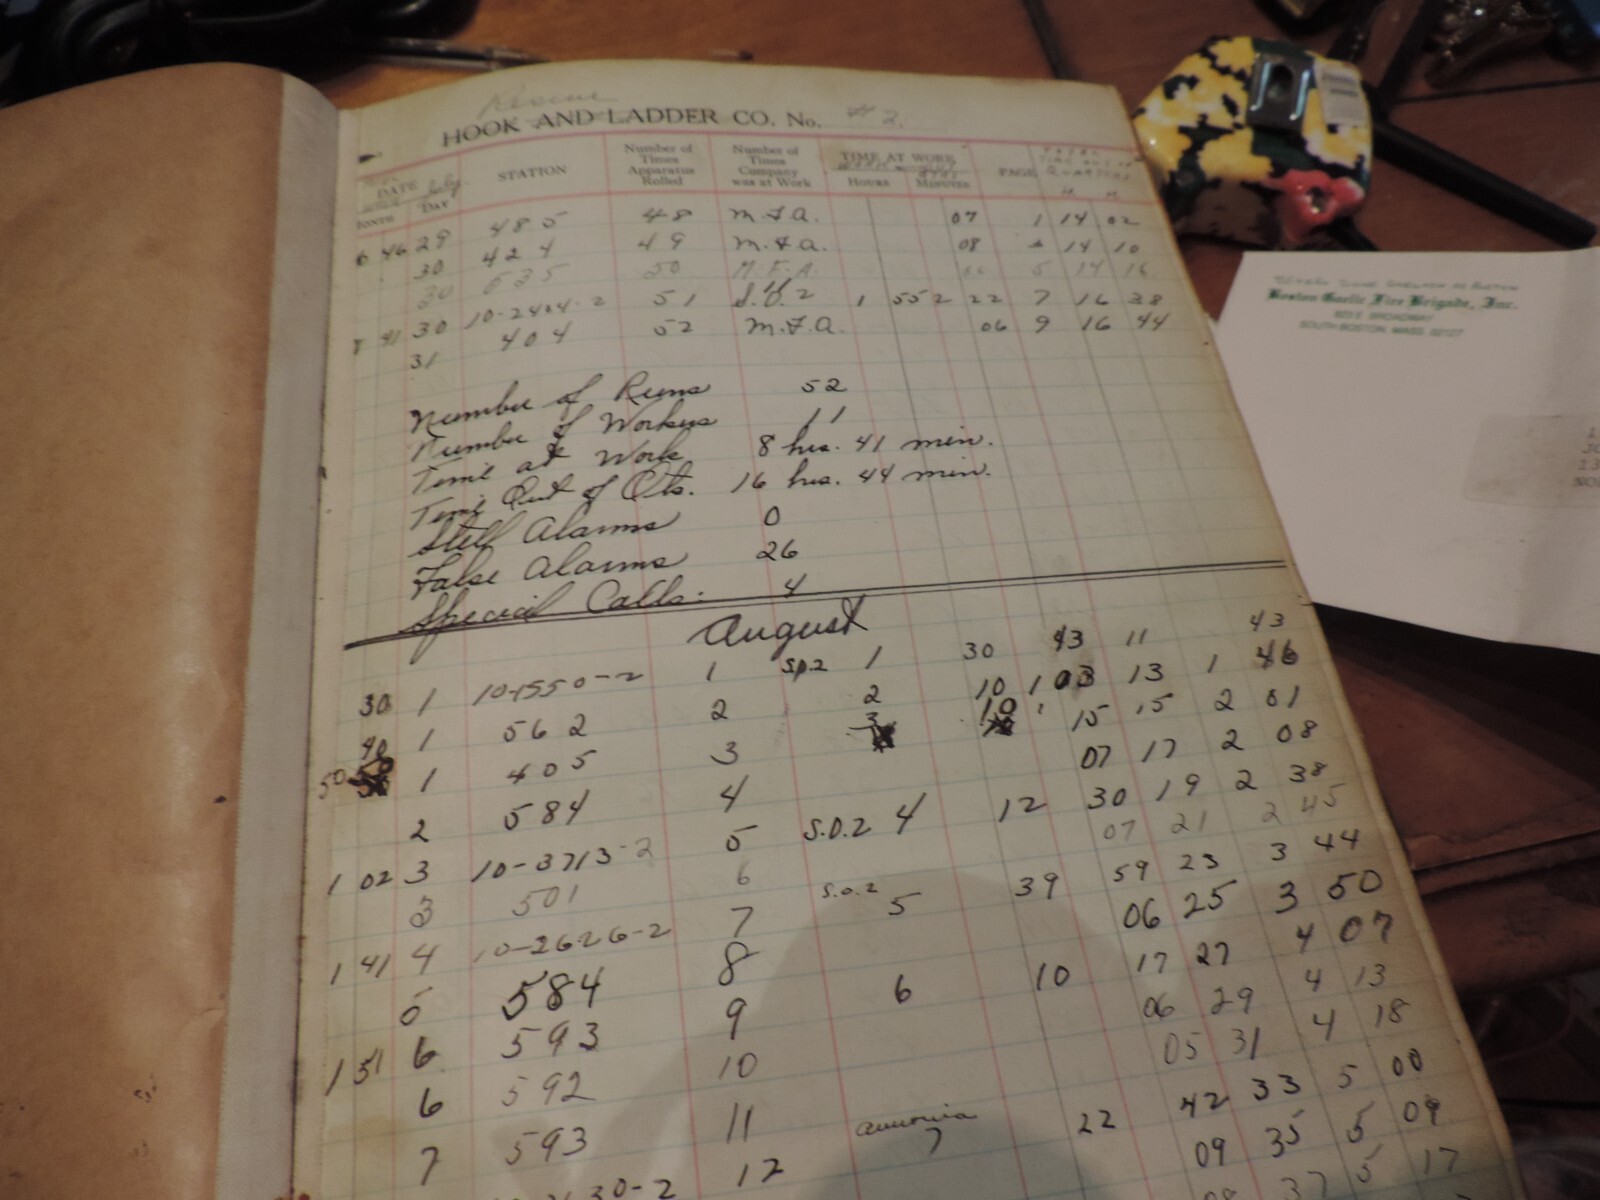 Rescue
HOOK AND LADDER CO. No. 2.
DATE
MONTH DAY
STATION
Number of Times Apparatus Rolled
Number of Times Company was at Work
TIME AT WORK
HOURS MINUTES
PAGE
TOTAL TIME OUT OF QUARTERS
H. M.
6 46 29 485 48 M.F.A. 07 1 14 02
30 424 49 M.F.A. 08 14 10
30 535 50 M.F.A. 06 5 14 16
30 10-2404-2 51 S.O.2 1 55 2 22 7 16 38
8 41 31 404 52 M.F.A. 06 9 16 44
Number of Runs 52
Number of Workers 11
Time at Work 8 hrs. 41 min.
Time Out of Qts. 16 hrs. 44 min.
Still Alarms 0
False Alarms 26
Special Calls: 4
August
30 1 10-1550-2 1 S.O.2 1 30 43 11 43
40 1 562 2 2 10 1 03 13 1 46
50 1 405 3 3 10 15 15 2 01
2 584 4 07 17 2 08
1 02 3 10-3713-2 5 S.O.2 4 12 30 19 2 38
3 501 6 07 21 2 45
1 41 4 10-2626-2 7 S.O.2 5 39 59 23 3 44
5 584 8 06 25 3 50
1 51 6 593 9 6 10 17 27 4 07
6 592 10 06 29 4 13
7 593 11 05 31 4 18
30-2 12 ammonia 7 22 42 33 5 00
09 35 5 09
08 37 5 17
Boston Gaelic Fire Brigade, Inc.
823 E. BROADWAY
SOUTH BOSTON, MASS. 02127